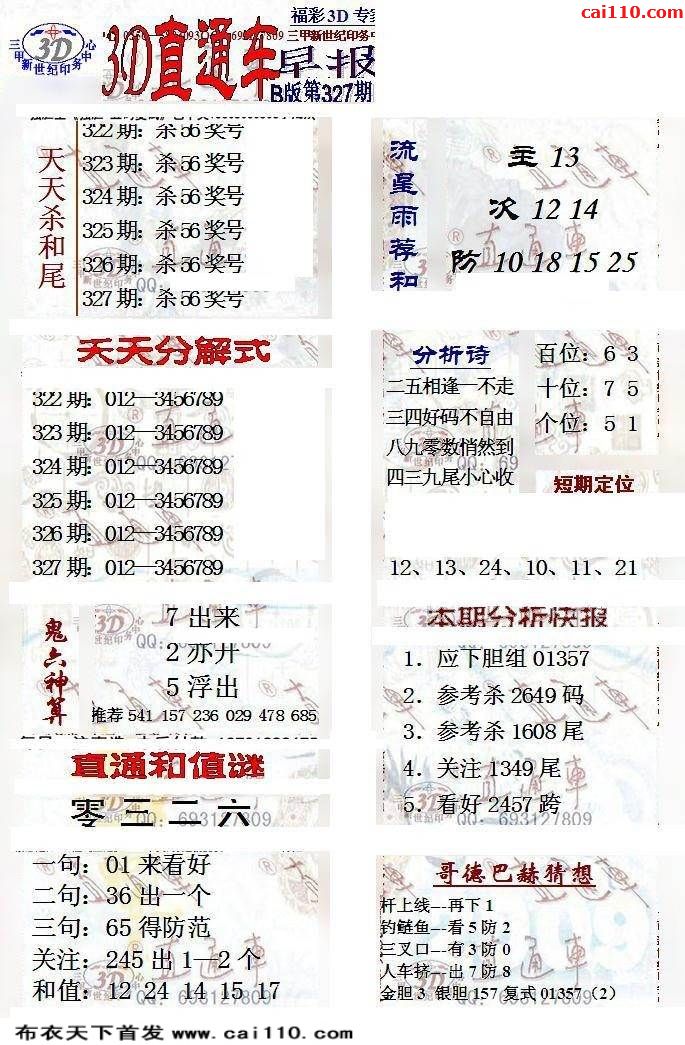 cai110.com
福彩3D 专家
三甲新世纪印务中心
3D
3D直通车
693127809 三甲新世纪印务中
早报
B版第327期
天天杀和尾
322 期: 杀 56 奖号
323 期: 杀 56 奖号
324 期: 杀 56 奖号
325 期: 杀 56 奖号
326 期: 杀 56 奖号
327 期: 杀 56 奖号
流星雨荐和
主 13
次 12 14
防 10 18 15 25
天天分解式
322 期: 012—3456789
323 期: 012—3456789
324 期: 012—3456789
325 期: 012—3456789
326 期: 012—3456789
327 期: 012—3456789
分析诗
二五相逢一不走
三四好码不自由
八九零数悄然到
四三九尾小心收
百位: 6 3
十位: 7 5
个位: 5 1
短期定位
12、13、24、10、11、21
鬼六神算
7 出来
2 亦开
5 浮出
推荐 541 157 236 029 478 685
本期分析快报
1. 应下胆组 01357
2. 参考杀 2649 码
3. 参考杀 1608 尾
4. 关注 1349 尾
5. 看好 2457 跨
直通和值谜
零 二 二 六
一句: 01 来看好
二句: 36 出一个
三句: 65 得防范
关注: 245 出 1—2 个
和值: 12 24 14 15 17
哥德巴赫猜想
杆上线---再下 1
钓鲢鱼---看 5 防 2
三叉口---有 3 防 0
人车挤---出 7 防 8
金胆 3 银胆 157 复式 01357（2）
布衣天下首发 www.cai110.com